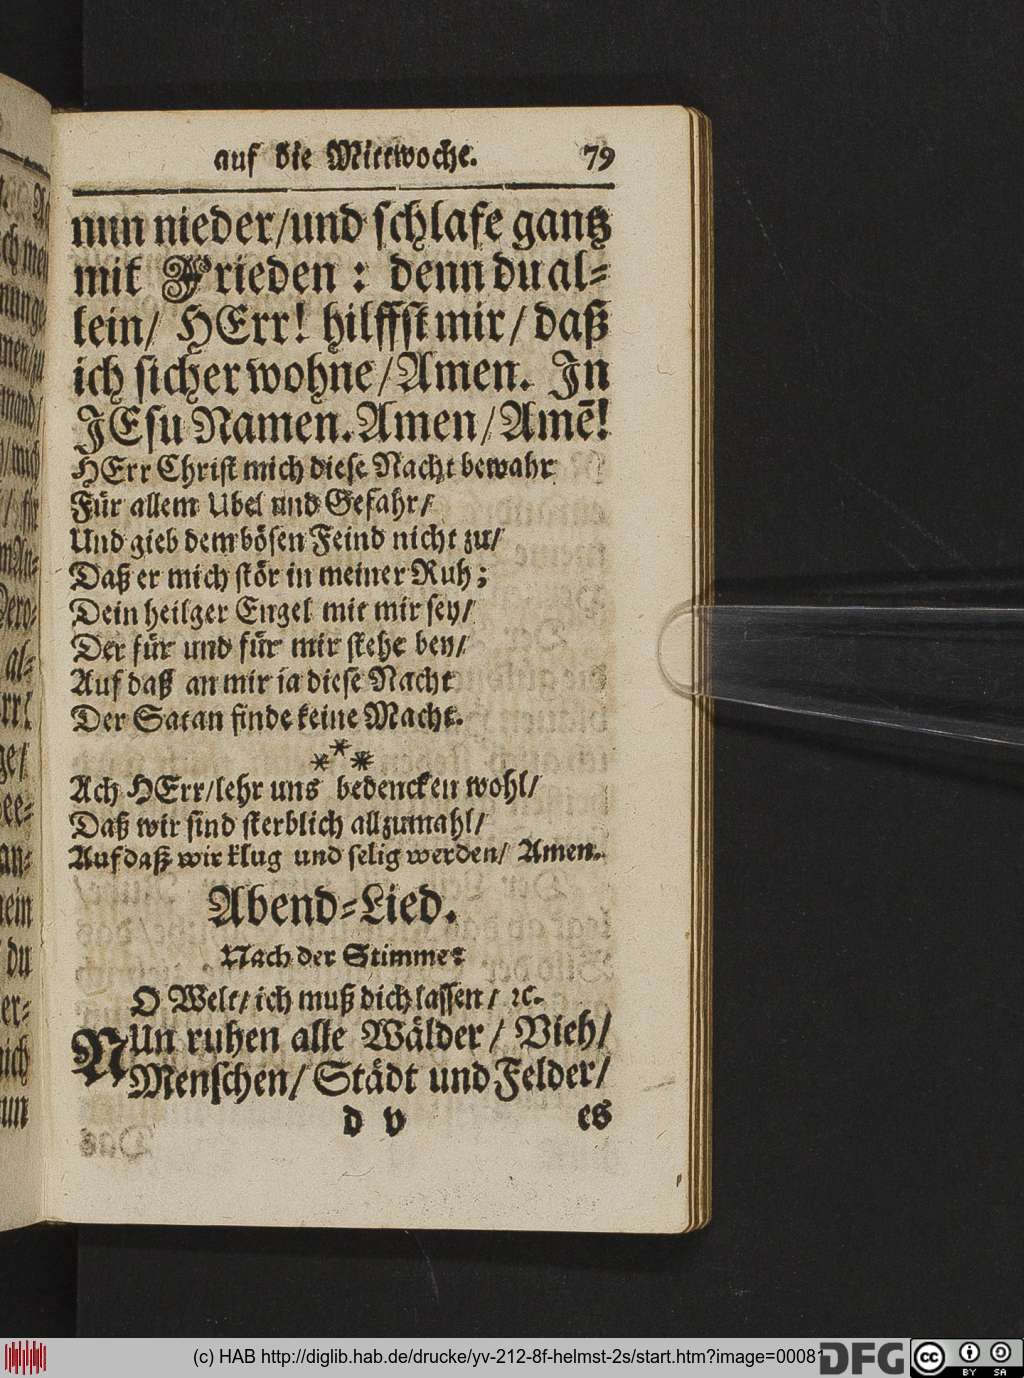 auf die Mittwoche. 79
nun nieder/und schlafe gantz
mit Frieden: denn du al-
lein/ HErr! hilffst mir/ daß
ich sicher wohne/Amen. In
JEsu Namen. Amen/Amē!
HErr Christ mich diese Nacht bewahr
Für allem Ubel und Gefahr/
Und gieb dem bösen Feind nicht zu/
Daß er mich stör in meiner Ruh;
Dein heilger Engel mit mir sey/
Der für und für mir stehe bey/
Auf daß an mir ja diese Nacht
Der Satan finde keine Macht.
***
Ach HErr/lehr uns bedencken wohl/
Daß wir sind sterblich allzumahl/
Auf daß wir klug und selig werden/ Amen.
Abend-Lied.
Nach der Stimme:
O Welt/ich muß dich lassen/ ꝛc.
NUn ruhen alle Wälder/ Vieh/
Menschen/ Städt und Felder/
d v es
(c) HAB http://diglib.hab.de/drucke/yv-212-8f-helmst-2s/start.htm?image=00081
DFG
cc BY SA